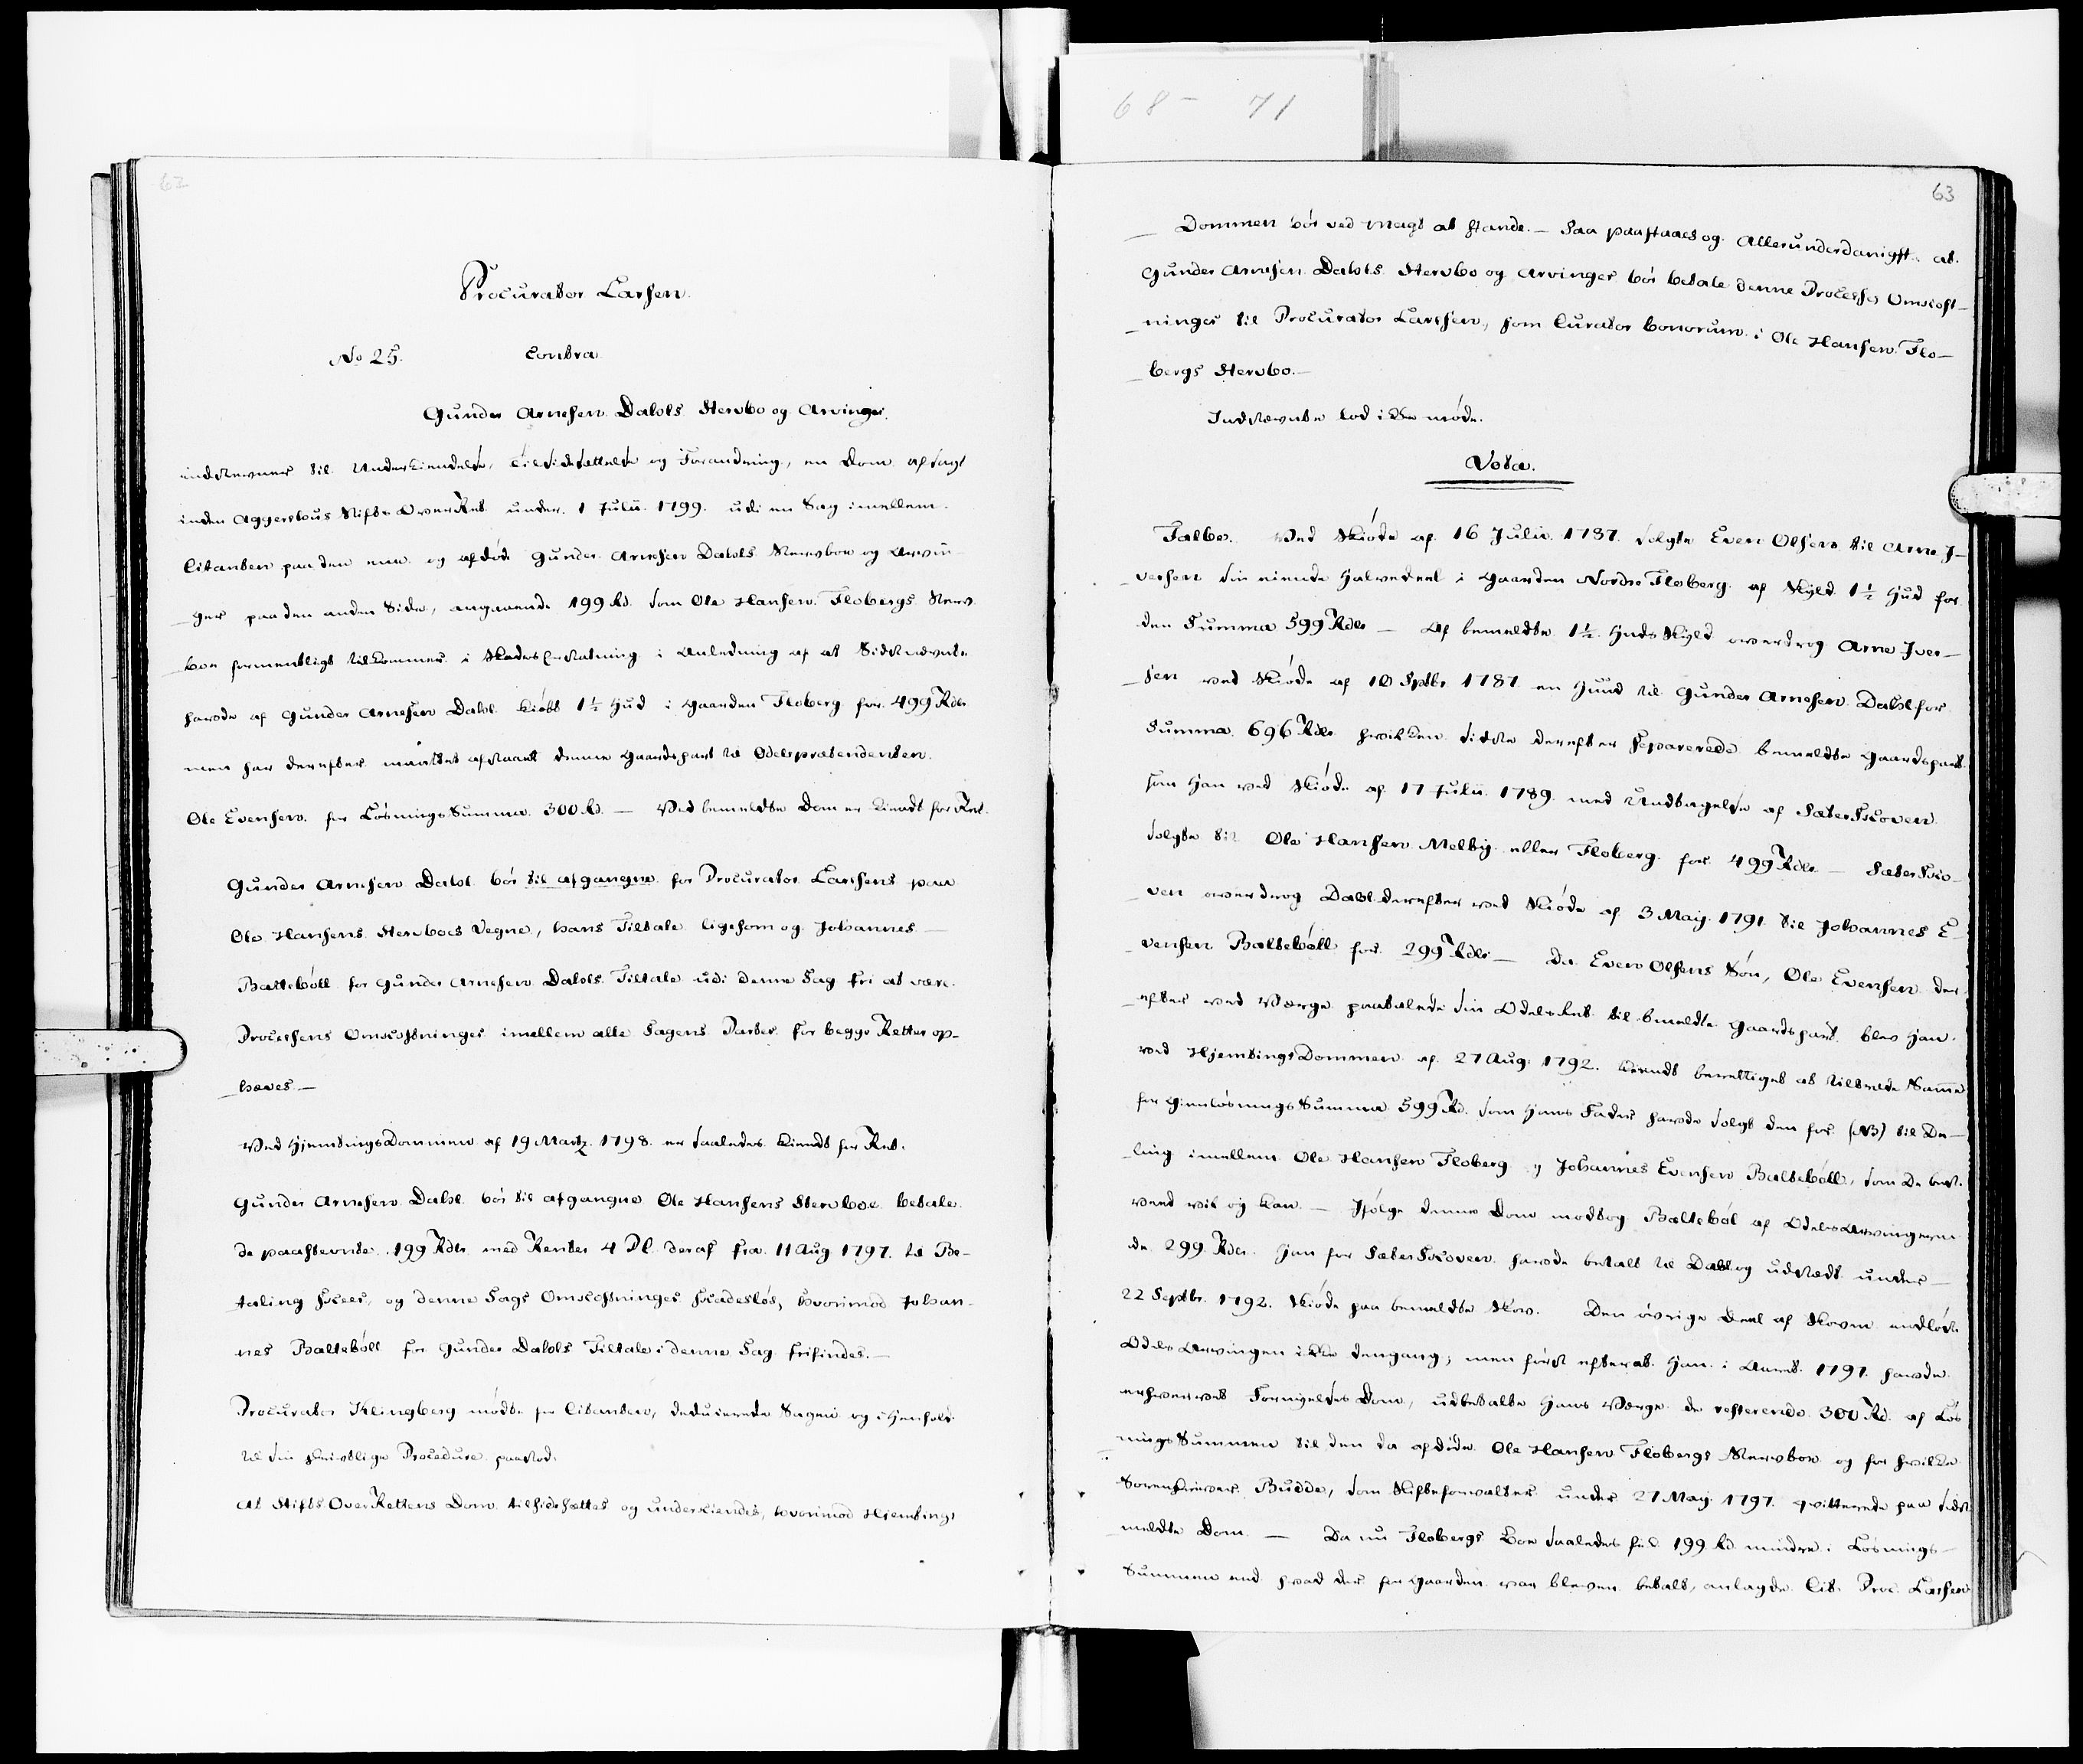 68 - 71
62
Procurator Larsen
No 25. Contra
Gunder Arnesen Dahls Stervbo og Arvinger
indstevner til Underkiendelse, Tilsidesættelse og Forandring, en Dom afsagt
inden Aggershuus Stifts Over Ret under 1 Julii 1799. udi en Sag imellem
Citanten paa den ene og afdøde Gunder Arnesen Dahls Stervboe og Arvin-
ger paa den anden Side, angaaende 199 Rd. som Ole Hansen Flobergs Sterv
boe formentligt tilkommer i Skades Erstatning i Anledning af at Sidstnævnte
havde af Gunder Arnesen Dahl kiøbt 1½ Hud i Gaarden Floberg for 499 Rdlr
men har derefter maattet afstaaet denne Gaardspart til Odelsprætendenten
Ole Evensen for Løsnings Summa 300 Rd. — Ved bemeldte Dom er kiendt for Ret.
Gunder Arnesen Dahl bør til afgangne for Procurator Larsens paa
Ole Hansens Stervboes Vegne, hans Tiltale ligesom og Johannes —
Baltebøll for Gunder Arnesen Dahls Tiltale udi denne Sag fri at være.
Processens Omkostninger imellem alle Sagens Parter for begge Retter op-
hæves —
Ved Hjemtings Dommen af 19 Martz. 1798. er saaledes kiendt for Ret.
Gunder Arnesen Dahl bør til afgangne Ole Hansens Stervboe betale
de paastevnte 199 Rdlr med Renter 4 Pl deraf fra 11 Aug 1797. til Be-
taling skeer, og denne Sags Omkostninger skadesløs, hvorimod Johan-
nes Baltebøll for Gunder Dahls Tiltale i denne Sag frifindes. —
Procurator Klingberg mødte for Citanten, deducerede Sagen og i Henhold
til sin skrivtlige Procedure paastod.
At Stifts Over Rettens Dom tilsidesættes og underkiendes, hvorimod Hjemtings
63
Dommen bør ved Magt at stande. — Saa paastaaes og Allerunderdanigst. at
Gunder Arnesen Dahls Stervbo og Arvinger bør betale denne Processes Omkost-
ninger til Procurator Larsen, som Curator bonorum i Ole Hansen Flo-
bergs Stervbo. —
Indstævnte lod ikke møde.
Vota.
Falbe. Ved Skiøde af 16 Julii 1787. solgte Even Olsen til Arne J-
versen sin eiende halvedeel i Gaarden Nordre Floberg af Skyld 1½ Hud for
den Summa 599 Rdlr — Af bemeldte 1½ Huds Skyld overdrog Arne Jver-
sen ved Skiøde af 10 Sptbr 1787 en Huud til Gunder Arnesen Dahl for
Summa 696 Rdlr hvilken sidste derefter separerede bemeldte Gaardspart
som han ved Skiøde af 17 Julii 1789. med Undtagelse af Sæter Skoven
solgte til Ole Hansen Melby eller Floberg for 499 Rdlr — Sæter Sko-
ven overdrog Dahl derefter ved Skiøde af 3 May 1791 til Johannes E-
vensen Baltebøll for 299 Rdlr — Da Even Olsens Søn, Ole Evensen der-
efter ved Værge paatalede sin Odels Ret til bemeldte Gaardspart blev han
ved Hjemtings Dommen af 27 Aug: 1792. kiendt berettiget at tiltræde Samme
for Gienløsnings Summa 599 Rd. som hans Fader havde solgt den for (NB) til De-
ling imellem Ole Hansen Floberg og Johannes Evensen Baltebøll, som De best
veed vil og kan — Ifølge denne Dom modtog Baltebøl af Odels Arvingerne
de 299 Rdlr. han for Sæter Skoven havde betalt til Dahl og udstædt under —
22 Septbr. 1792. Skiøde paa bemeldte Skov. Den øvrige Deel af Skoven indløste
Odels Arvingen ikke dengang; men først efterat han i Aaret 1797. havde
erhvervet Fornyelses Dom, udbetalte hans Værge de resterende 300 Rd. af Løs
nings Summen til den da afdøde Ole Hansen Flobergs Stervboe og for hvilke
Sorenskriver Budde, som Skifteforvalter under 27 May 1797. qvitterede paa sidst
meldte Dom — Da nu Flobergs Boe saaledes fik 199 Rd mindre i Løsnings-
Summen end hvad der for Gaarden var bleven betalt, anlagde Cit. Proc. Larsen